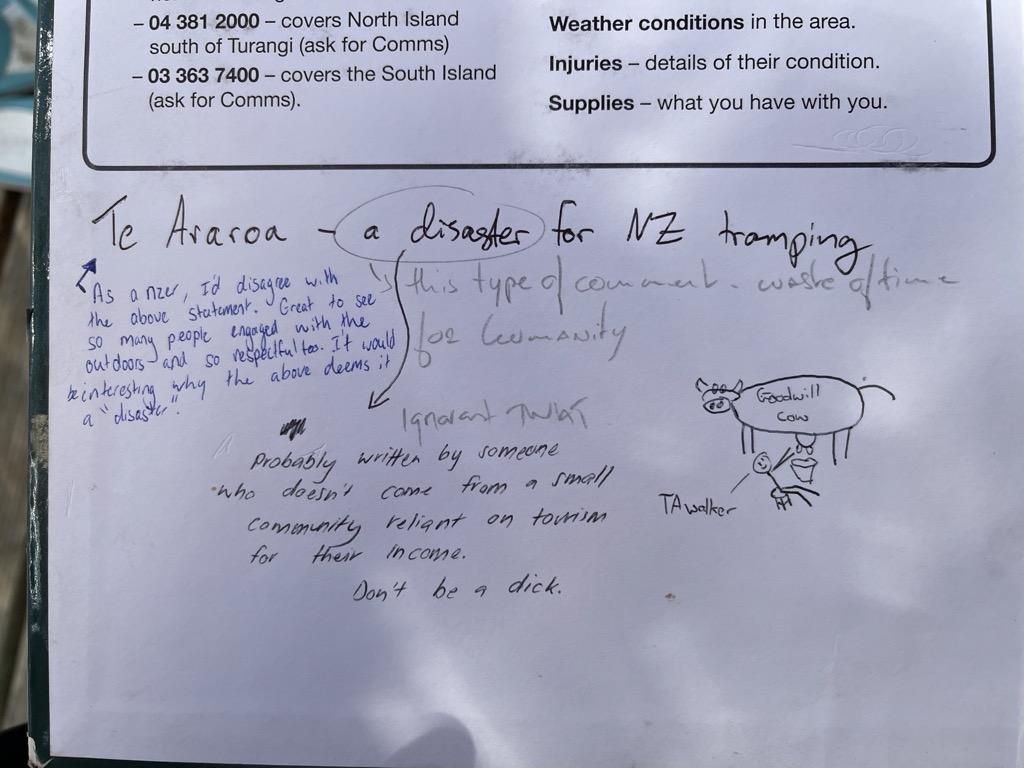 – 04 381 2000 – covers North Island
south of Turangi (ask for Comms)
– 03 363 7400 – covers the South Island
(ask for Comms).
Weather conditions in the area.
Injuries – details of their condition.
Supplies – what you have with you.
Te Araroa – a disaster for NZ tramping
this type of comment. waste of time
for humanity
As a nzer, I'd disagree with
the above statement. Great to see
so many people engaged with the
outdoors and so respectful too. It would
be interesting why the above deems it
a "disaster".
Ignorant TWAT
Probably written by someone
who doesn't come from a small
community reliant on tourism
for their income.
Don't be a dick.
Goodwill
Cow
TA walker